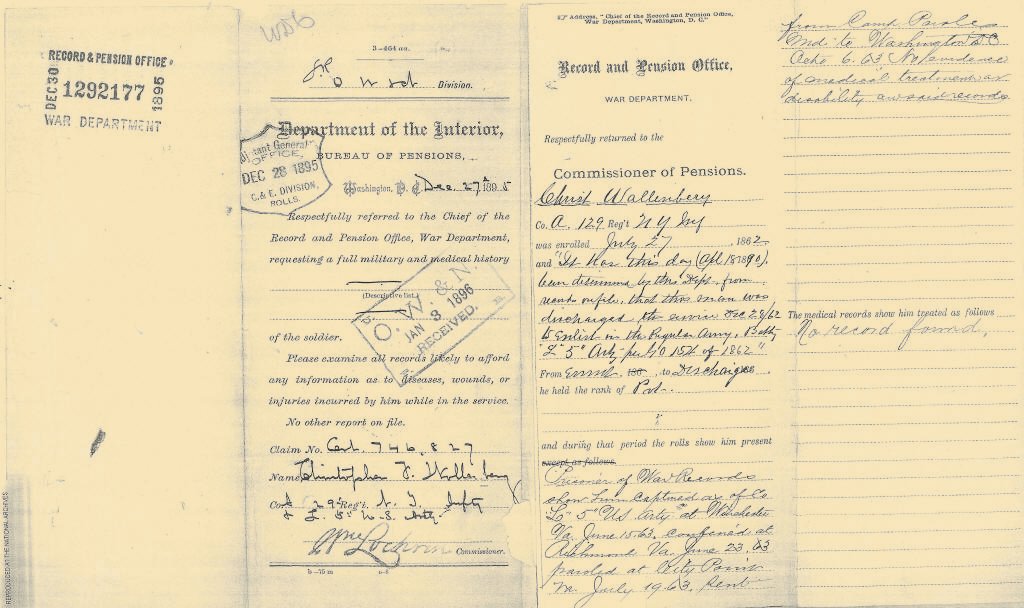 RECORD & PENSION OFFICE
DEC 30 1292177 1895
WAR DEPARTMENT
REPRODUCED AT THE NATIONAL ARCHIVES
3—464 aa.
Division.
Department of the Interior,
BUREAU OF PENSIONS,
Washington, D. C., Dec. 27, 1895
OFFICE,
DEC 28 1895
C. & E. DIVISION,
ROLLS.
Respectfully referred to the Chief of the
Record and Pension Office, War Department,
requesting a full military and medical history
(Descriptive list.)
O. W. & N.
JAN 3 1896
RECEIVED.
of the soldier.
Please examine all records likely to afford
any information as to diseases, wounds, or
injuries incurred by him while in the service.
No other report on file.
Claim No. Cert. 746,827
Name Christopher F. Wollenberg
Co. 29 Reg't. N. Y. Infty
& L. 5" U.S. Arty
Wm Lochren Commissioner.
Address, "Chief of the Record and Pension Office,
War Department, Washington, D. C."
Record and Pension Office,
WAR DEPARTMENT.
Respectfully returned to the
Commissioner of Pensions.
Christ Wallenberg
Co. A. 129 Reg't N Y Inf
was enrolled July 27, 1862
and "It has this day (Apl 18 1890),
been determined by this Dept, from
records on file, that this man was
discharged the service Dec 28/62
to Enlist in the Regular Army, Batty
"L" 5" Arty per GO 154 of 1862"
From Enrolt, 186 , to Discharge 186
he held the rank of Pvt.
and during that period the rolls show him present
except as follows.
Prisoner of War Records
show him captured as of Co
L" 5" US Arty" at Winchester
Va. June 15.63. confined at
Richmond Va. June 23, 63
paroled at City Point
Va. July 19 63, sent
from Camp Parole
Md to Washington DC
Octo 6. 63 No evidence
of medical treatment or
disability on said records
The medical records show him treated as follows
No record found,